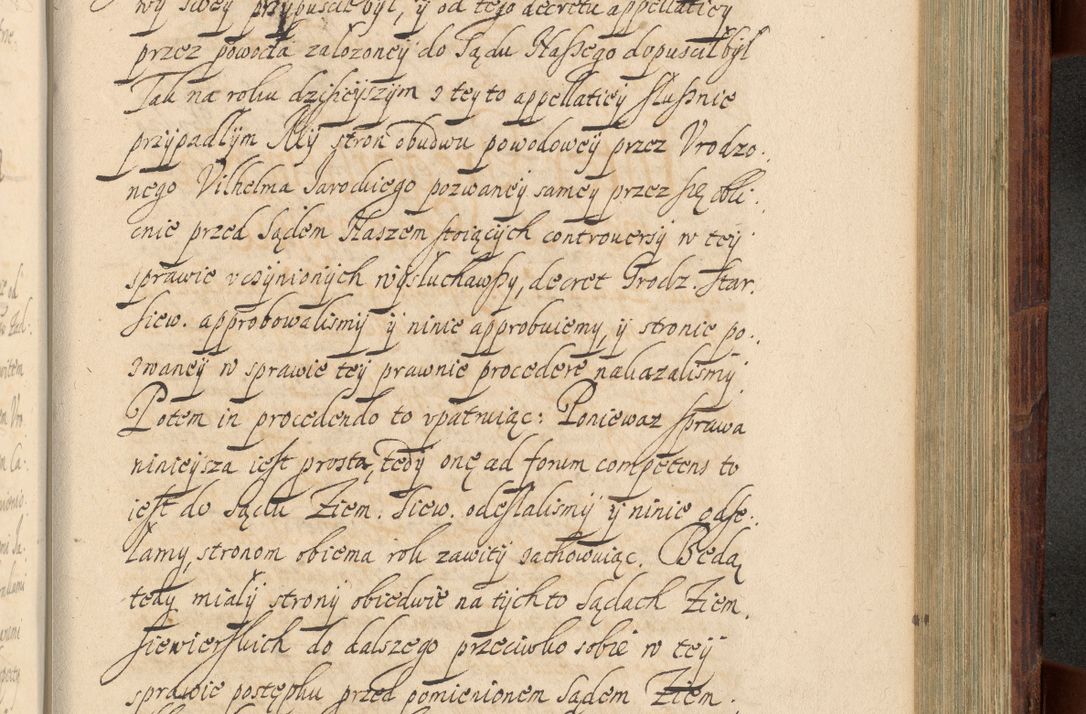 wÿ swey przypuscił był, ÿ od tego decretu appellatieÿ
przez powoda założoneÿ do Sądu Naszego dopuscił był
Tak na roku dzisieyszÿm z teÿ to appellatieÿ słusznie
przÿpadłÿm Mÿ stron obudwu powodoweÿ przez Vrodzo.
nego Vilhelma Sarockiego pozwaneÿ sameÿ przez się obli.
cnie przed Sądem Naszem stoiącÿch controuersÿ w teÿ
sprawie vczÿnionÿch wÿsłuchawszÿ, decret Grodz. Star.
Siew. approbowalismÿ ÿ ninie approbuiemy, ÿ stronie po.
zwaneÿ w sprawie teÿ prawnie procedere nakazalismÿ.
Potem in procedendo to vpatruiąc: Poniewaz sprawa
ninieÿsza iest prosta, tedy onę ad forum competens to
iest do Sądu Ziem. Siew. odesłalismÿ ÿ ninie odse.
łamy, stronom obiema rok zawitÿ zachowuiąc. Będą
tedy miałÿ stronÿ obiedwie na tÿch to Sądach Ziem.
Siewierskich do dalszego przeciwko sobie w teÿ
sprawie postępku przed pomienionem Sądem Ziem.